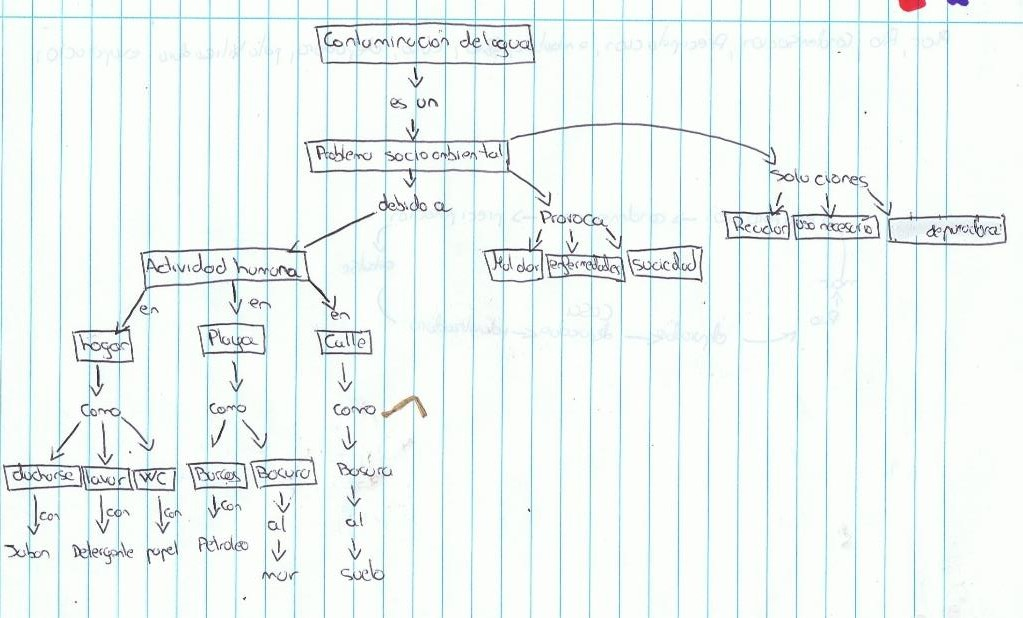 Contaminación del agua
es un
Problema socioambiental
debido a
Provoca
Soluciones
Mal olor
enfermedades
suciedad
Reciclar
uso necesario
depuradora
Actividad humana
en
en
en
hogar
Playa
Calle
como
como
como
ducharse
lavar
WC
Barcos
Basura
Basura
con
con
con
con
al
al
Jabon
Detergente
papel
Petroleo
mar
suelo